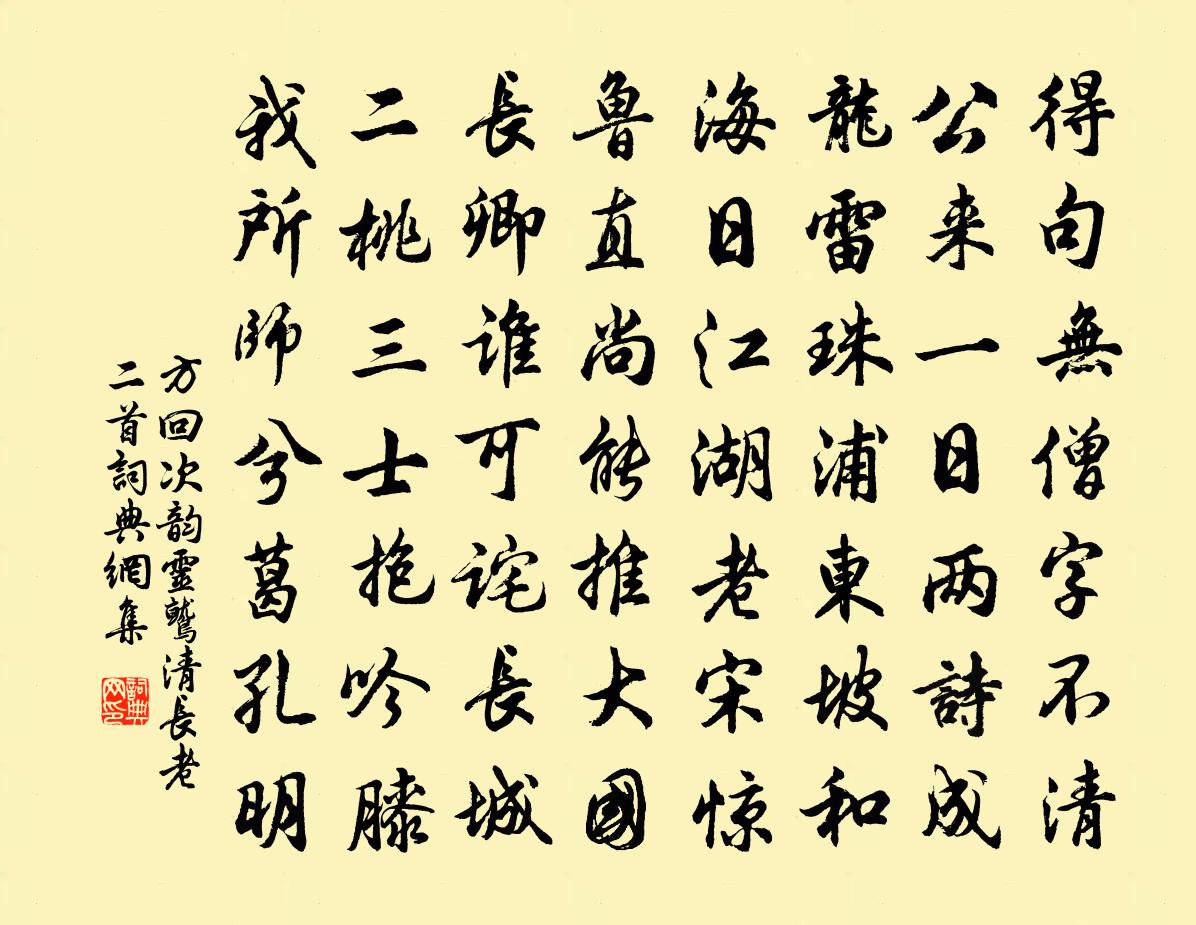 得句無僧字不清
公来一日两詩成
龍雷珠浦東坡和
海日江湖老宋惊
魯直尚能推大國
長卿誰可詫長城
二桃三士抱吟膝
我所師兮葛孔明
方回次韵靈鷲清長老
二首詞典網集
詞典
网印